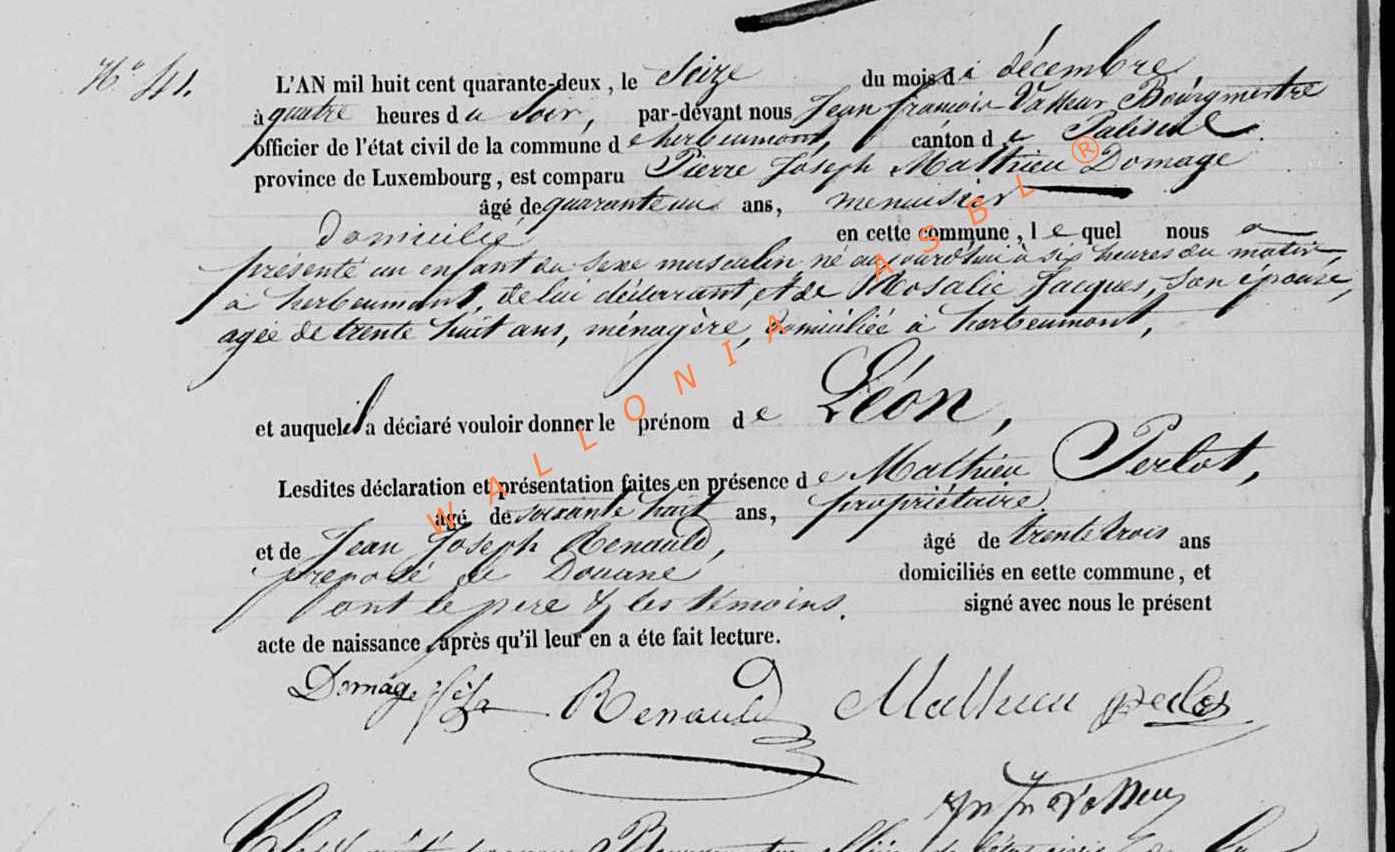 N° 41.
L'AN mil huit cent quarante-deux, le Seize du mois de décembre
à quatre heures du Soir, par-devant nous Jean françois Vasseur Bourgmestre
officier de l'état civil de la commune de herbeumont, canton de Paliseul
province de Luxembourg, est comparu Pierre Joseph Mathieu Domage
âgé de quarante un ans, menuisier
Domicilié en cette commune, lequel nous a
présenté un enfant du sexe musculin, né aujourd'hui à six heures du matin,
à herbeumont, de lui déclarant, et de Rosalie Jacques, son épouse,
agée de trente huit ans, ménagère, domiciliée à herbeumont,
et auquel il a déclaré vouloir donner le prénom de Léon,
Lesdites déclaration et présentation faites en présence de Mathieu Perlot,
âgé de soixante huit ans, propriétaire
et de Jean Joseph Renauld, âgé de trente trois ans
préposé de Douane domiciliés en cette commune, et
ont le père & les témoins. signé avec nous le présent
acte de naissance, après qu'il leur en a éte fait lecture.
Domage Renauld Mathieu perlot
WALLONIA ASBL ®